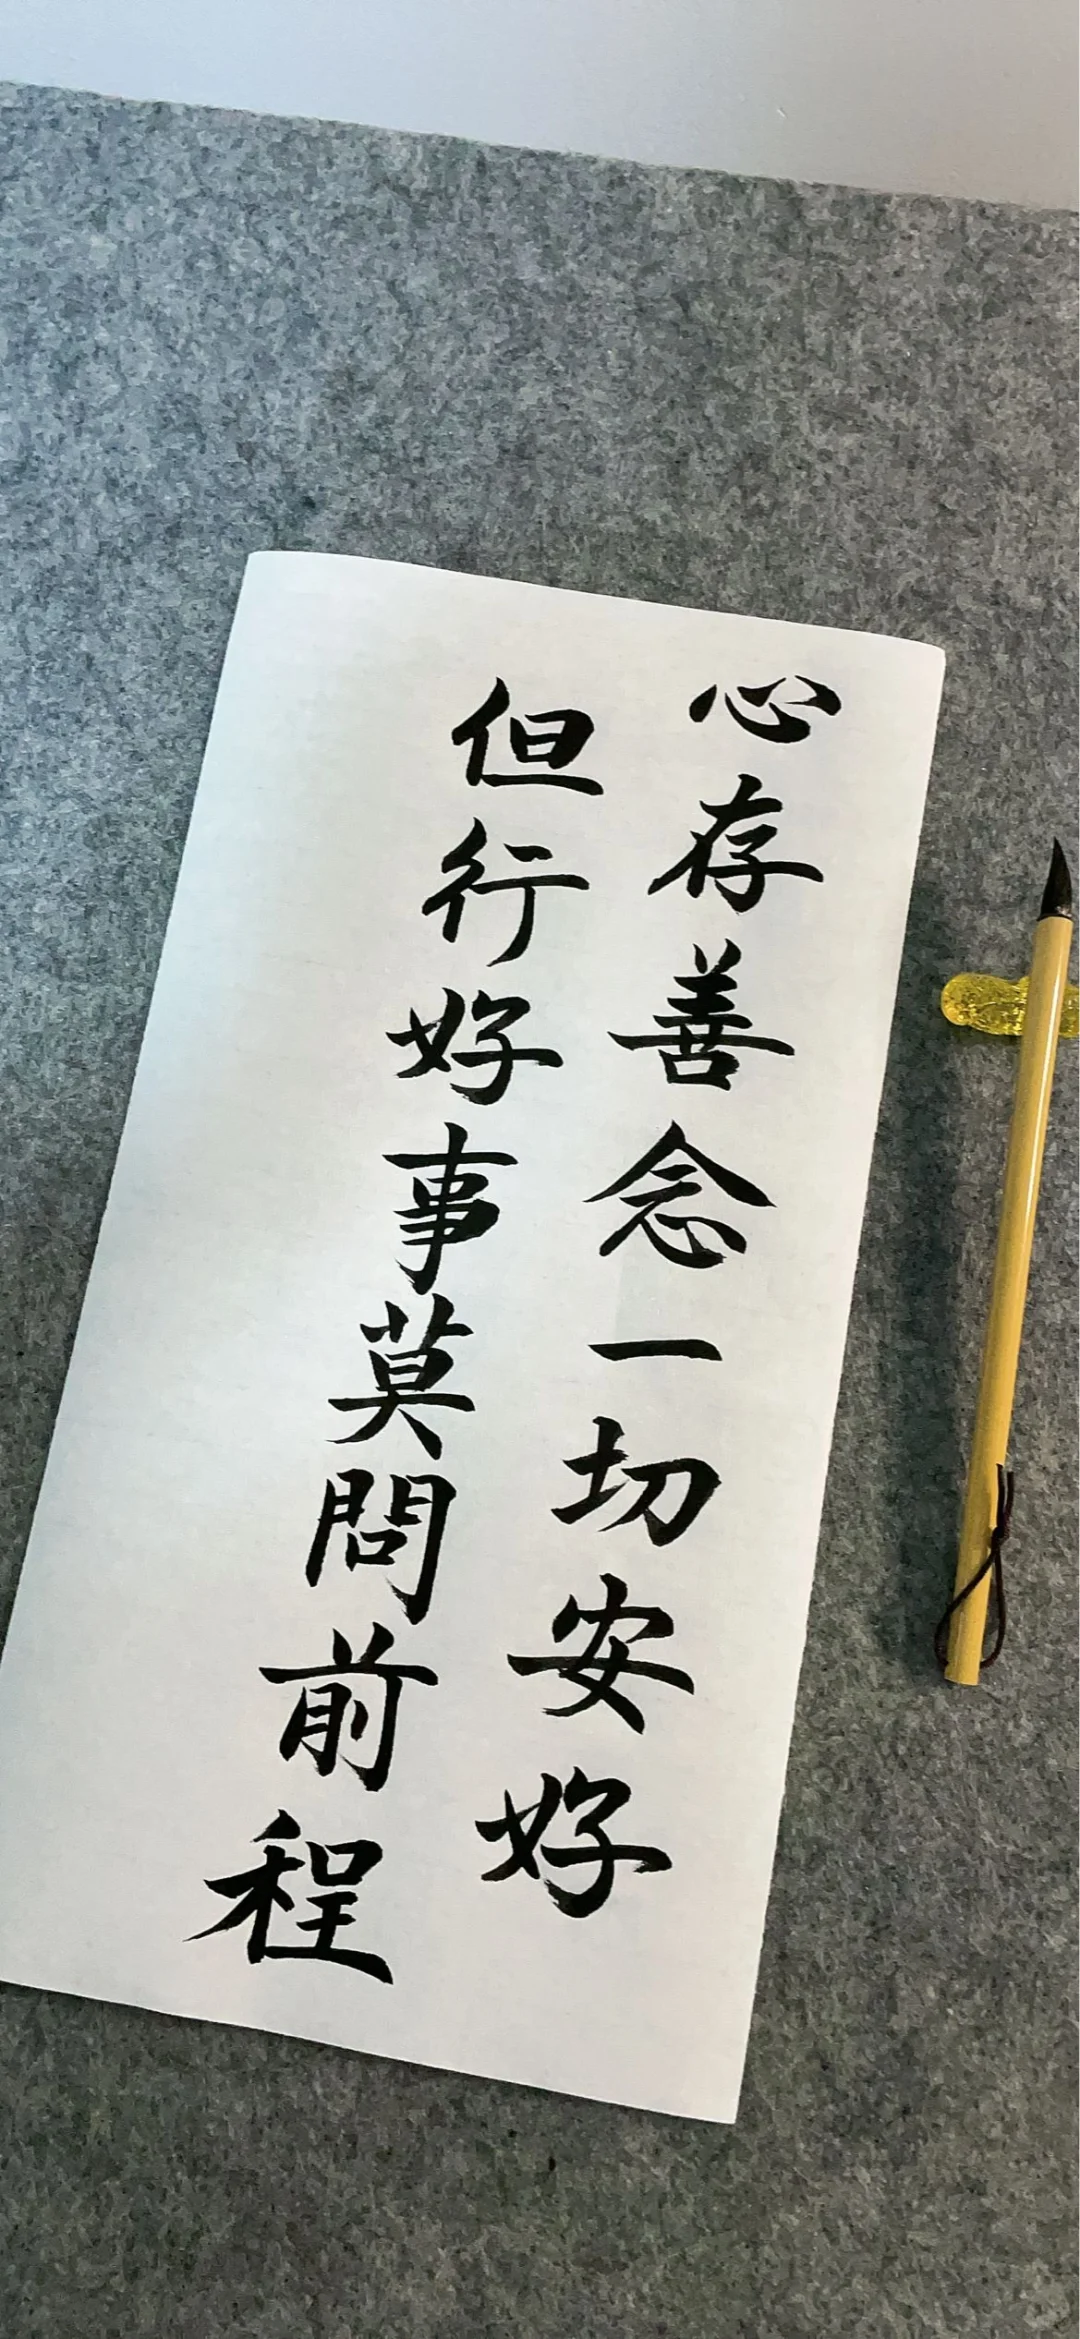 心存善念一切安好
但行好事莫問前程